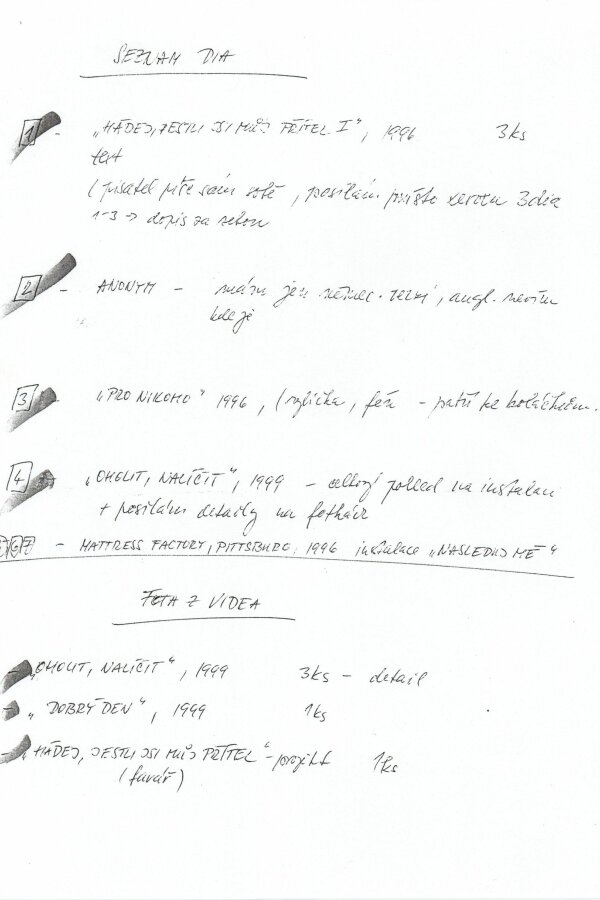 SEZNAM DIA
1 - „HÁDEJ, JESTLI JSI MŮJ PŘÍTEL I“, 1996 3ks
text
(pisatel píše sám sobě, posílám xerox 3 dia
1-3 → dopis za sebou
2 - ANONYM - mám jen německ. verzi, angl. nevím
kde je
3 - „PRO NIKOHO“ 1996, ( - patří ke koláčkům.
4 „OHOLIT, NALÍČIT“, 1999 - celkový pohled na instalaci
+ posílám detaily na fotkách
67 - MATTRESS FACTORY, PITTSBURG, 1996 instalace „NASLEDUJ MĚ“
FOTA Z VIDEA
„OHOLIT, NALÍČIT“, 1999 3ks - detail
- „DOBRÝ DEN“, 1999 1ks
- „HÁDEJ, JESTLI JSI MŮJ PŘÍTEL“ - projekt 1ks